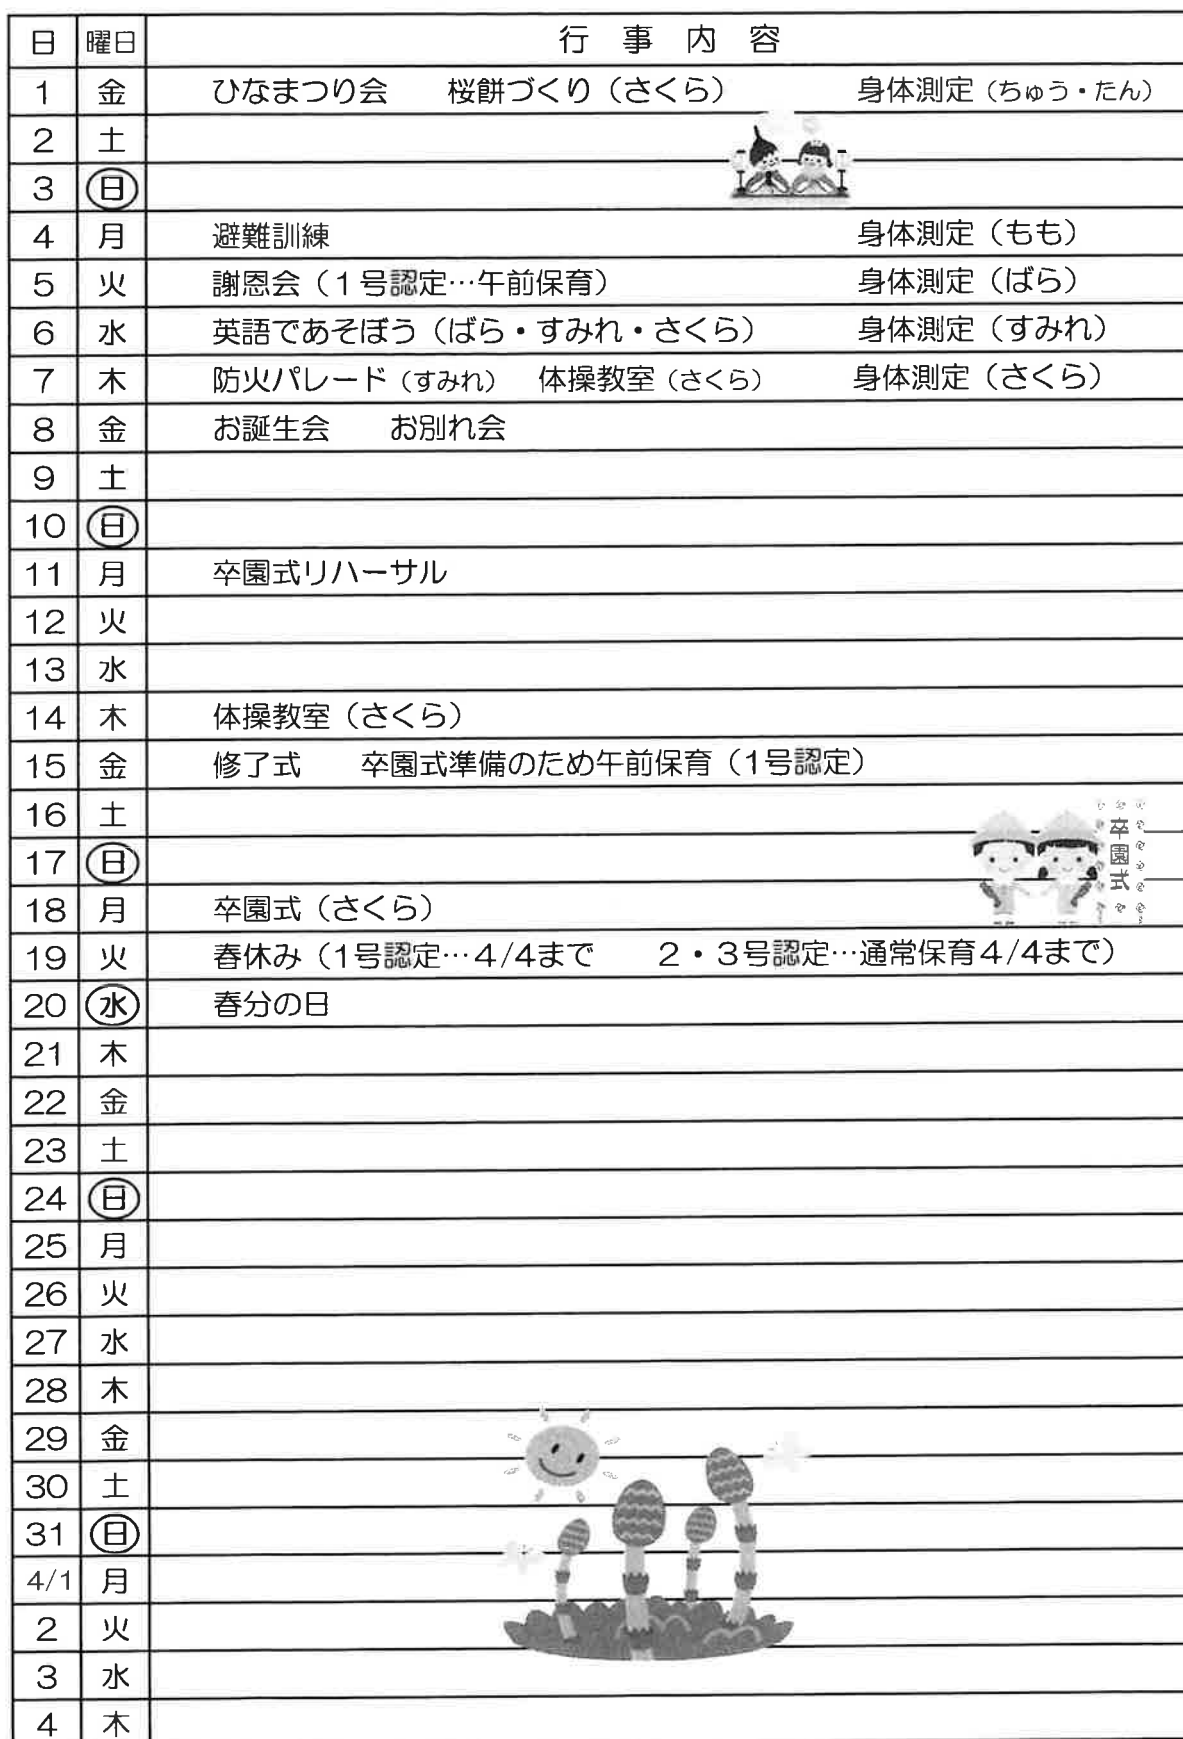 日 曜日 行 事 内 容
1 金 ひなまつり会 桜餅づくり（さくら） 身体測定（ちゅう・たん）
2 土
3 日
4 月 避難訓練 身体測定（もも）
5 火 謝恩会（１号認定…午前保育） 身体測定（ばら）
6 水 英語であそぼう（ばら・すみれ・さくら） 身体測定（すみれ）
7 木 防火パレード（すみれ） 体操教室（さくら） 身体測定（さくら）
8 金 お誕生会 お別れ会
9 土
10 日
11 月 卒園式リハーサル
12 火
13 水
14 木 体操教室（さくら）
15 金 修了式 卒園式準備のため午前保育（1号認定）
16 土
17 日
卒園式
18 月 卒園式（さくら）
19 火 春休み（1号認定…４/4まで ２・３号認定…通常保育４/４まで）
20 水 春分の日
21 木
22 金
23 土
24 日
25 月
26 火
27 水
28 木
29 金
30 土
31 日
4/1 月
2 火
3 水
4 木